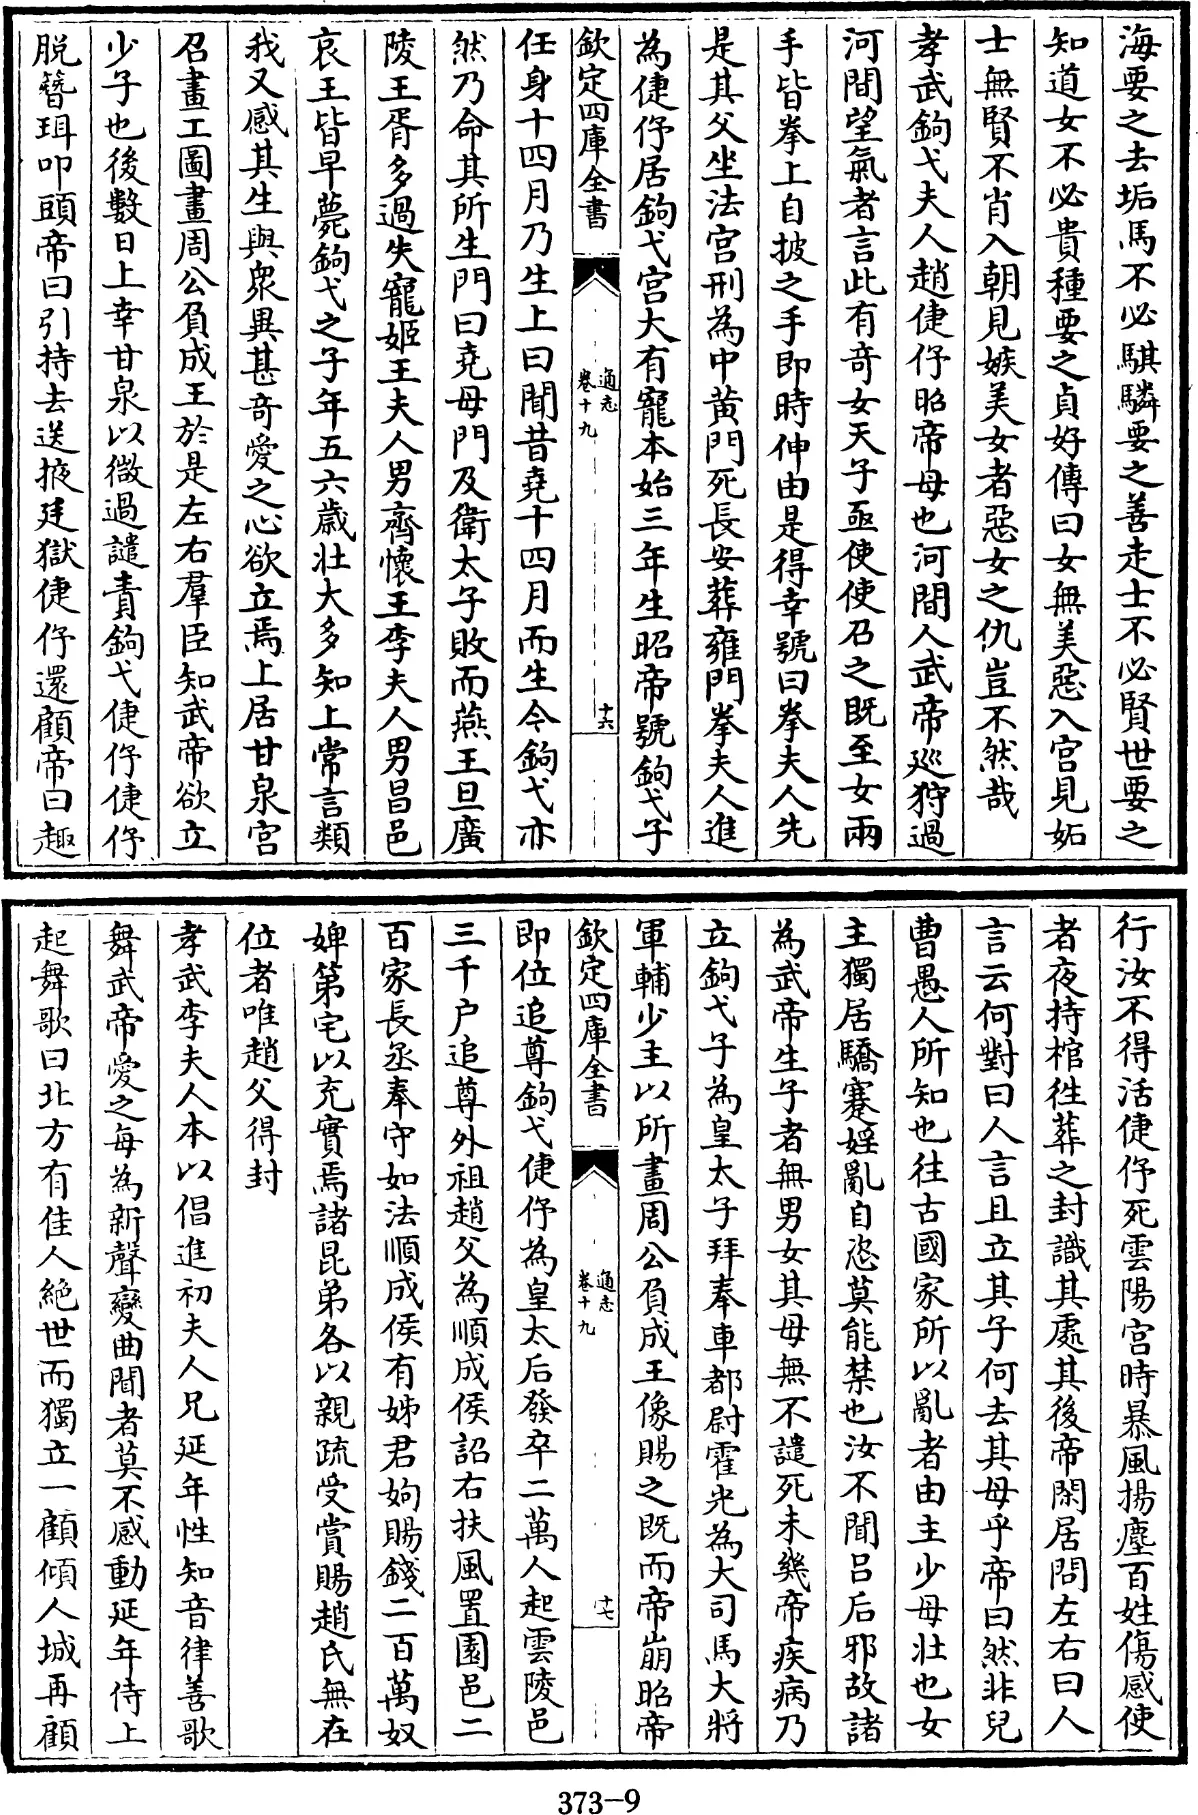 海要之去垢馬不必騏驎要之善走士不必賢世要之
知道女不必貴種要之貞好傳曰女無美惡入宫見妬
士無賢不肖入朝見嫉美女者惡女之仇豈不然哉
孝武鉤弋夫人趙倢伃昭帝母也河間人武帝廵狩過
河間望氣者言此有奇女天子亟使使召之既至女兩
手皆拳上自披之手即時伸由是得幸號曰拳夫人先
是其父坐法宫刑為中黄門死長安葬雍門拳夫人進
為倢伃居鉤弋宫大有寵本始三年生昭帝號鉤弋子
欽定四庫全書
通志
卷十九
十六
任身十四月乃生上曰聞昔堯十四月而生今鉤弋亦
然乃命其所生門曰堯母門及衛太子敗而燕王旦廣
陵王胥多過失寵姬王夫人男齊懷王李夫人男昌邑
哀王皆早薨鉤弋之子年五六歲壯大多知上常言類
我又感其生與衆異甚奇愛之心欲立焉上居甘泉宫
召畫工圖畫周公負成王於是左右羣臣知武帝欲立
少子也後數日上幸甘泉以微過譴責鉤弋倢伃倢伃
脱簪珥叩頭帝曰引持去送掖廷獄倢伃還顧帝曰趣
行汝不得活倢伃死雲陽宫時暴風揚塵百姓傷感使
者夜持棺徃葬之封識其處其後帝閑居問左右曰人
言云何對曰人言且立其子何去其母乎帝曰然非兒
曹愚人所知也往古國家所以亂者由主少母壯也女
主獨居驕蹇婬亂自恣莫能禁也汝不聞吕后邪故諸
為武帝生子者無男女其母無不譴死未幾帝疾病乃
立鉤弋子為皇太子拜奉車都尉霍光為大司馬大將
軍輔少主以所畫周公負成王像賜之既而帝崩昭帝
欽定四庫全書
通志
卷十九
十七
即位追尊鉤弋倢伃為皇太后發卒二萬人起雲陵邑
三千户追尊外祖趙父為順成侯詔右扶風置園邑二
百家長丞奉守如法順成侯有姊君姁賜錢二百萬奴
婢第宅以充實焉諸昆弟各以親疏受賞賜趙氏無在
位者唯趙父得封
孝武李夫人本以倡進初夫人兄延年性知音律善歌
舞武帝愛之每為新聲變曲聞者莫不感動延年侍上
起舞歌曰北方有佳人絶世而獨立一顧傾人城再顧
373-9